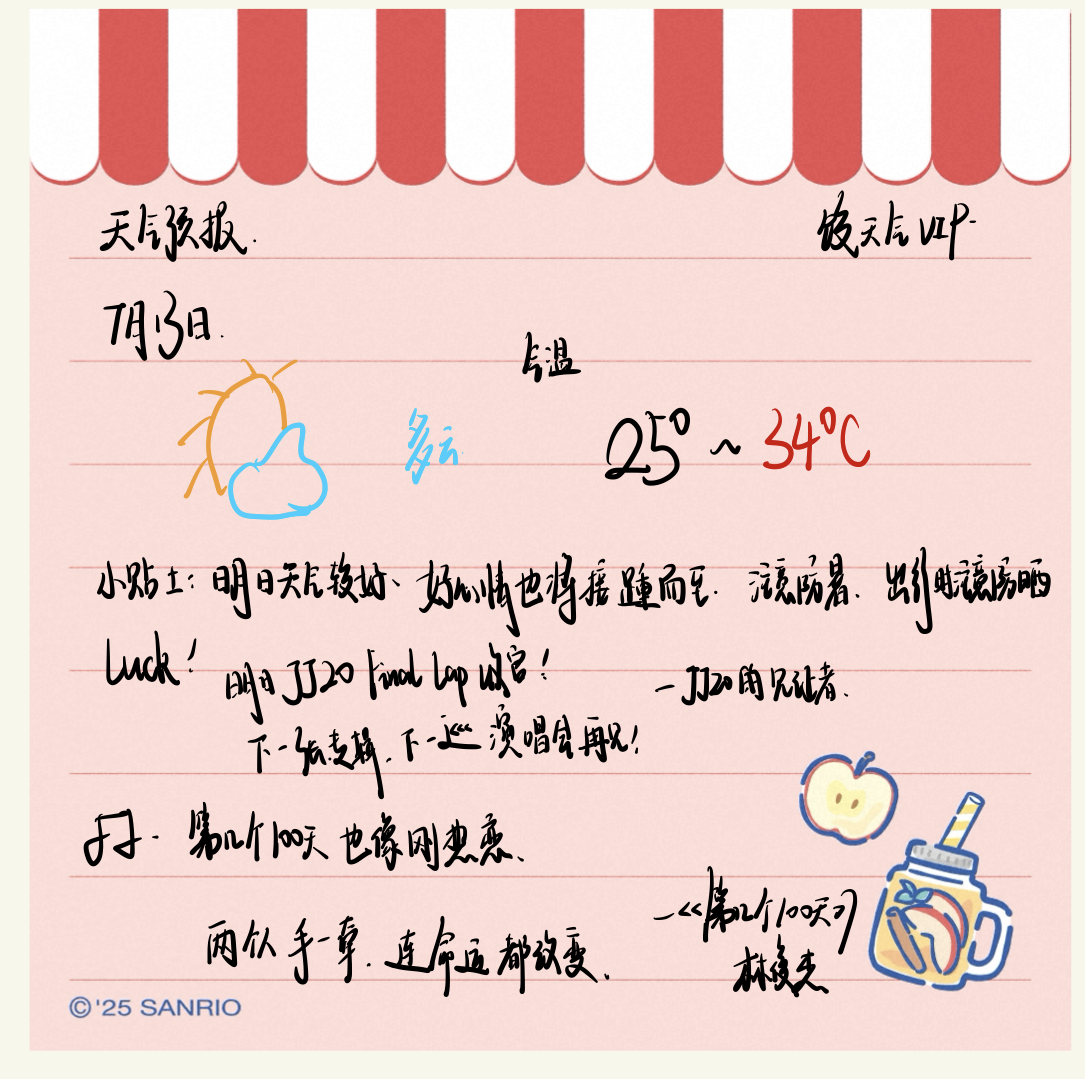 天气预报.
俊天气VIP.
7月13日.
气温
多云.
25°~34°C
小贴士:明日天气较好、好心情也将接踵而至. 注意防暑. 出行时注意防晒
Luck!
明日JJ20 Final Lap 收官!
—JJ20的见证者.
下一张专辑.下一巡演唱会再见!
第几个100天也像刚热恋、
两个人手一牵.连命运都改变.
—《第几个100天》
林俊杰
©'25 SANRIO